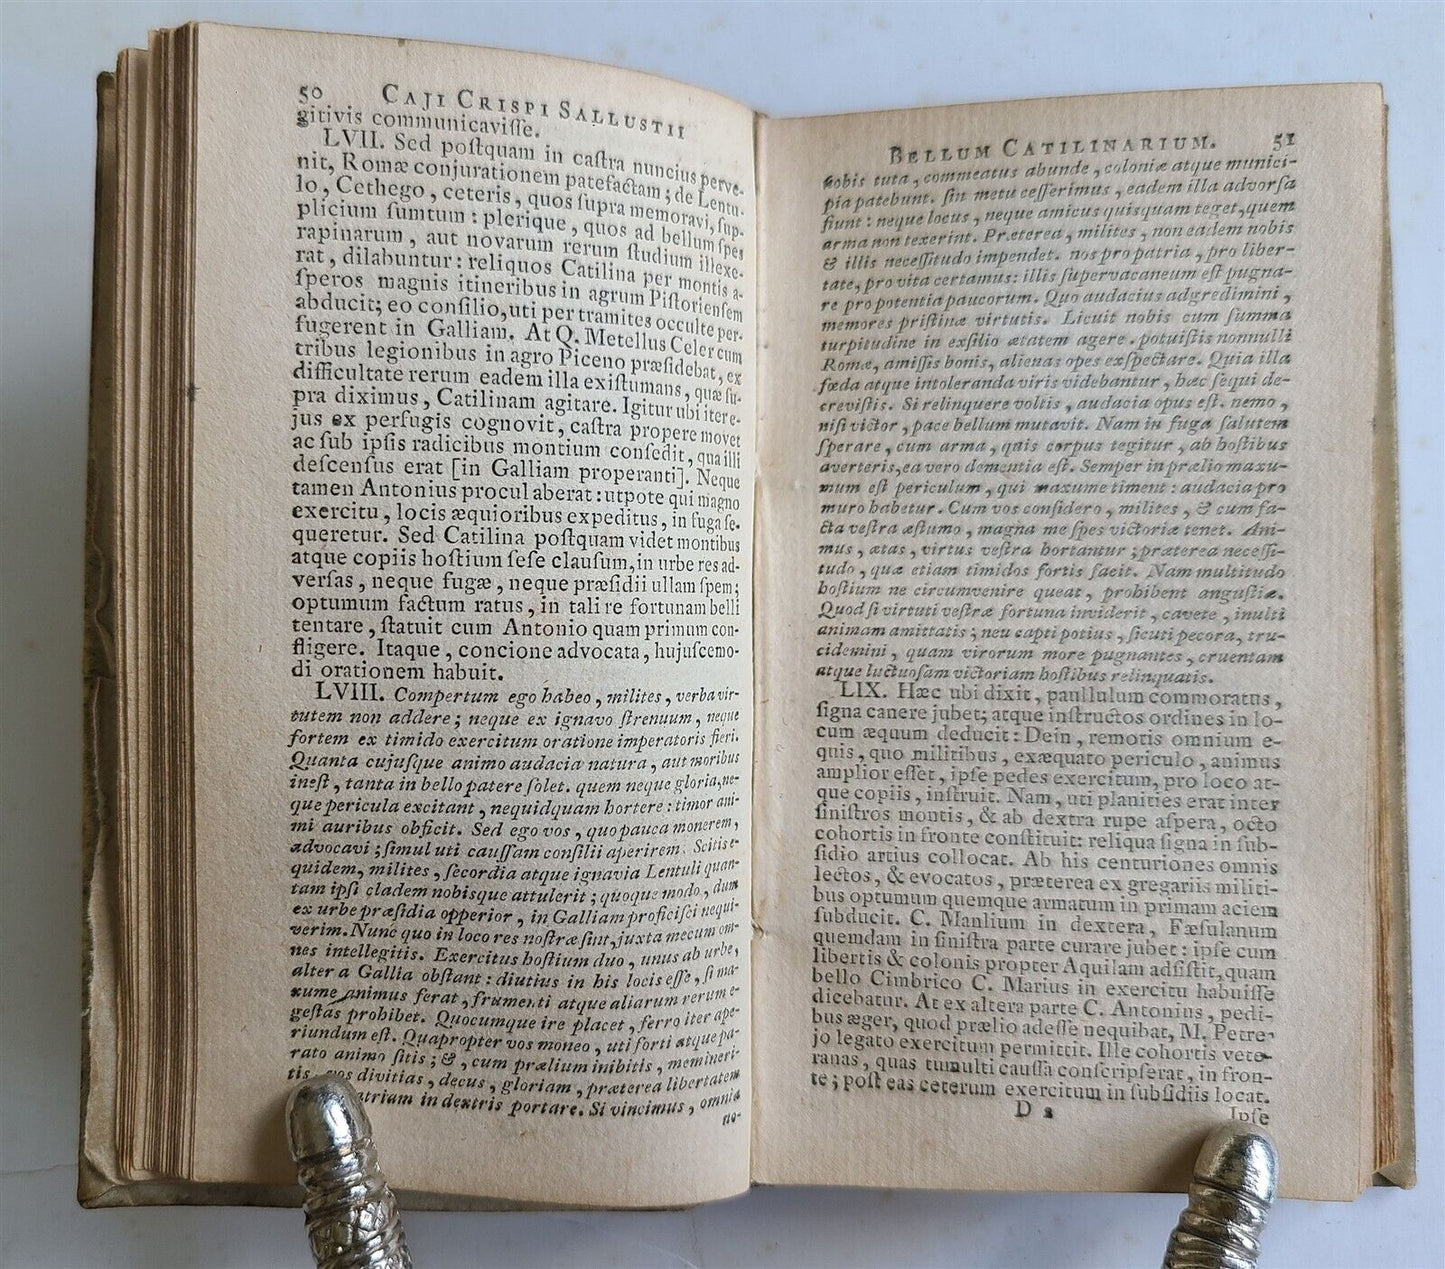 50 CAJI CRISPI SALLUSTII
gitivis communicaviſſe.
LVII. Sed poſtquam in caſtra nuncius perve-
nit, Romæ conjurationem patefactam; de Lentu-
lo, Cethego, ceteris, quos ſupra memoravi, ſup-
plicium ſumtum: plerique, quos ad bellum ſpes
rapinarum, aut novarum rerum ſtudium illexe-
rat, dilabuntur: reliquos Catilina per montis a-
ſperos magnis itineribus in agrum Piſtorienſem
abducit; eo conſilio, uti per tramites occulte per-
fugerent in Galliam. At Q. Metellus Celer cum
tribus legionibus in agro Piceno præſidebat, ex
difficultate rerum eadem illa exiſtumans, quæ ſu-
pra diximus, Catilinam agitare. Igitur ubi iter e-
jus ex perfugis cognovit, caſtra propere movet
ac ſub ipſis radicibus montium conſedit, qua illi
deſcenſus erat [in Galliam properanti]. Neque
tamen Antonius procul aberat: utpote qui magno
exercitu, locis æquioribus expeditus, in fuga ſe-
queretur. Sed Catilina poſtquam videt montibus
atque copiis hoſtium ſeſe clauſum, in urbe res ad-
verſas, neque fugæ, neque præſidii ullam ſpem;
optumum factum ratus, in tali re fortunam belli
tentare, ſtatuit cum Antonio quam primum con-
fligere. Itaque, concione advocata, hujuſcemo-
di orationem habuit.
LVIII. Compertum ego habeo, milites, verba vir-
tutem non addere; neque ex ignavo ſtrenuum, neque
fortem ex timido exercitum oratione imperatoris fieri.
Quanta cujuſque animo audacia natura, aut moribus
ineſt, tanta in bello patere ſolet. quem neque gloria, ne-
que pericula excitant, nequidquam hortere: timor ani-
mi auribus obficit. Sed ego vos, quo pauca monerem,
advocavi; ſimul uti cauſſam conſilii aperirem. Scitis e-
quidem, milites, ſecordia atque ignavia Lentuli quan-
tam ipſi cladem nobisque attulerit; quoque modo, dum
ex urbe præſidia opperior, in Galliam proficiſci nequi-
verim. Nunc quo in loco res noſtræ ſint, juxta mecum om-
nes intellegitis. Exercitus hoſtium duo, unus ab urbe,
alter a Gallia obſtant: diutius in his locis eſſe, ſi ma-
xume animus ferat, frumenti atque aliarum rerum e-
geſtas prohibet. Quocumque ire placet, ferro iter ape-
riundum eſt. Quapropter vos moneo, uti forti atque pa-
rato animo ſitis; &, cum prælium inibitis, memineri-
tis, vos divitias, decus, gloriam, præterea libertatem
atriam in dextris portare. Si vincimus, omnia
no-
BELLUM CATILINARIUM. 51
nobis tuta, commeatus abunde, coloniæ atque munici-
pia patebunt. ſin metu ceſſerimus, eadem illa advorſa
fiunt: neque locus, neque amicus quisquam teget, quem
arma non texerint. Præterea, milites, non eadem nobis
& illis neceſſitudo impendet. nos pro patria, pro liber-
tate, pro vita certamus: illis ſupervacaneum eſt pugna-
re pro potentia paucorum. Quo audacius adgredimini,
memores priſtinæ virtutis. Licuit nobis cum ſumma
turpitudine in exſilio ætatem agere. potuiſtis nonnulli
Romæ, amiſſis bonis, alienas opes exſpectare. Quia illa
fœda atque intoleranda viris videbantur, hæc ſequi de-
creviſtis. Si relinquere voltis, audacia opus eſt. nemo,
niſi victor, pace bellum mutavit. Nam in fuga ſalutem
ſperare, cum arma, quis corpus tegitur, ab hoſtibus
averteris, ea vero dementia eſt. Semper in prælio maxu-
mum eſt periculum, qui maxume timent: audacia pro
muro habetur. Cum vos conſidero, milites, & cum fa-
cta veſtra æſtumo, magna me ſpes victoriæ tenet. Ani-
mus, ætas, virtus veſtra hortantur; præterea neceſſi-
tudo, quæ etiam timidos fortis facit. Nam multitudo
hoſtium ne circumvenire queat, prohibent anguſtiæ.
Quod ſi virtuti veſtræ fortuna inviderit, cavete, inulti
animam amittatis; neu capti potius, ſicuti pecora, tru-
cidemini, quam virorum more pugnantes, cruentam
atque luctuoſam victoriam hoſtibus relinquatis.
LIX. Hæc ubi dixit, paullulum commoratus,
ſigna canere jubet; atque inſtructos ordines in lo-
cum æquum deducit: Dein, remotis omnium e-
quis, quo militibus, exæquato periculo, animus
amplior eſſet, ipſe pedes exercitum, pro loco at-
que copiis, inſtruit. Nam, uti planities erat inter
ſiniſtros montis, & ab dextra rupe aſpera, octo
cohortis in fronte conſtituit: reliqua ſigna in ſub-
ſidio artius collocat. Ab his centuriones omnis
lectos, & evocatos, præterea ex gregariis militi-
bus optumum quemque armatum in primam aciem
ſubducit. C. Manlium in dextera, Fæſulanum
quemdam in ſiniſtra parte curare jubet: ipſe cum
libertis & colonis propter Aquilam adſiſtit, quam
bello Cimbrico C. Marius in exercitu habuiſſe
dicebatur. At ex altera parte C. Antonius, pedi-
bus æger, quod prælio adeſſe nequibat, M. Petre-
jo legato exercitum permittit. Ille cohortis vete-
ranas, quas tumulti cauſſa conſcripſerat, in fron-
te; poſt eas ceterum exercitum in ſubſidiis locat.
D 2 Ipſe